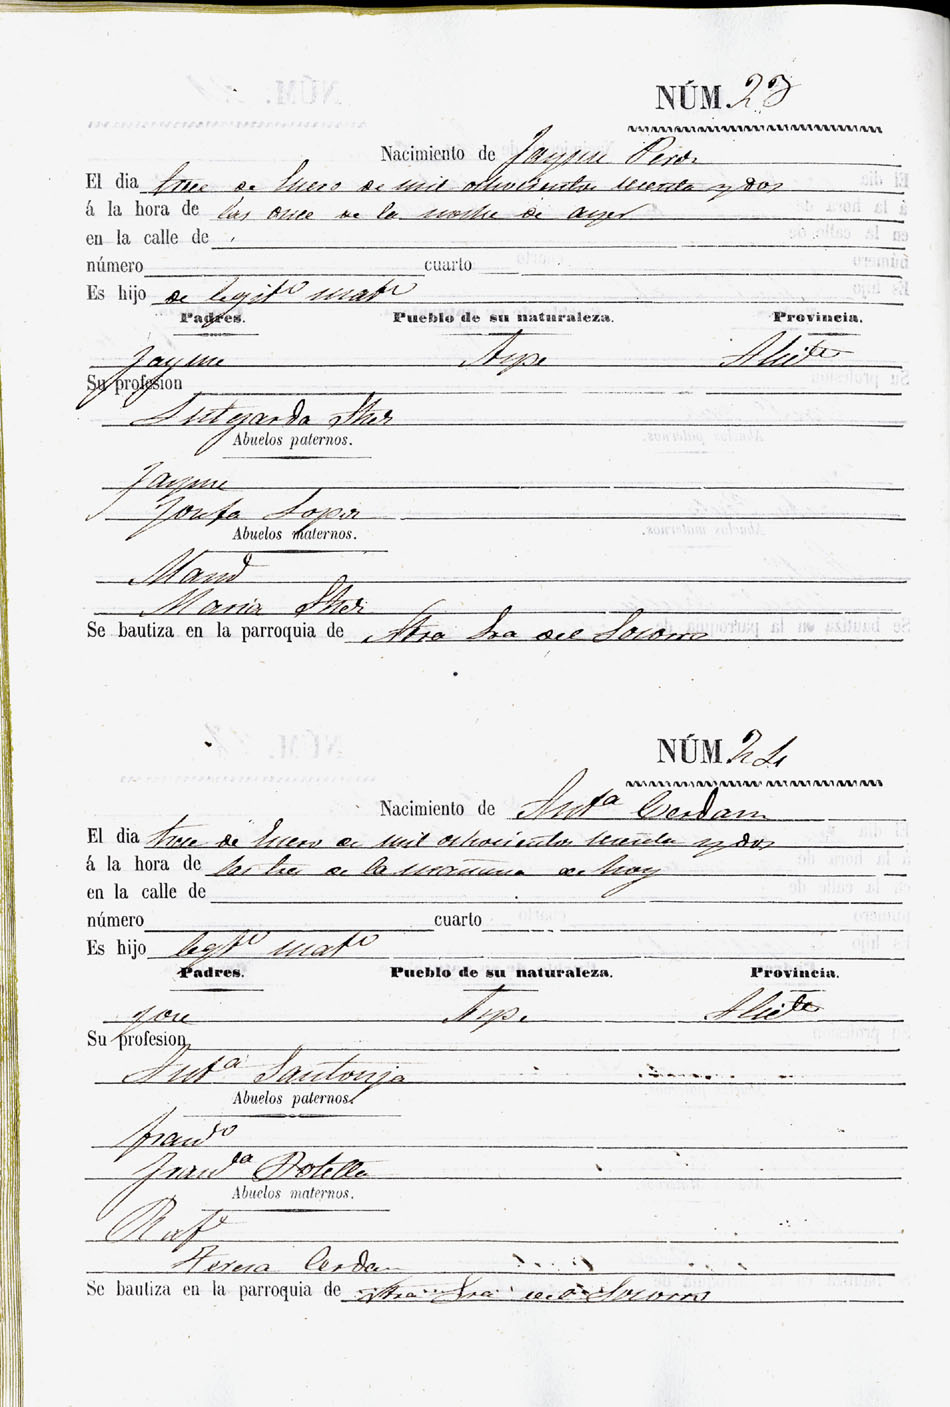 NÚM. 23
Nacimiento de Jayme
El dia trece de Enero de mil ochocientos y dos
á la hora de las once de la noche de ayer
en la calle de
número cuarto
Es hijo de legitº matº
Padres. Pueblo de su naturaleza. Provincia.
Jayme Aspe Alicte
Su profesion
Lutgarda
Abuelos paternos.
Jayme
Josefa Lopez
Abuelos maternos.
Manl
Maria
Se bautiza en la parroquia de Ntra Sra del Socorro
NÚM. 24
Nacimiento de Antª Cerdan
El dia trece de Enero de mil ochocientos y dos
á la hora de las tres de la mañana de hoy
en la calle de
número cuarto
Es hijo legtº matº
Padres. Pueblo de su naturaleza. Provincia.
Jose Aspe Alicte
Su profesion
Antª Santonja
Abuelos paternos.
Francº
Francª Botella
Abuelos maternos.
Rafl
Teresa Cerdan
Se bautiza en la parroquia de Ntra Sra del Socorro